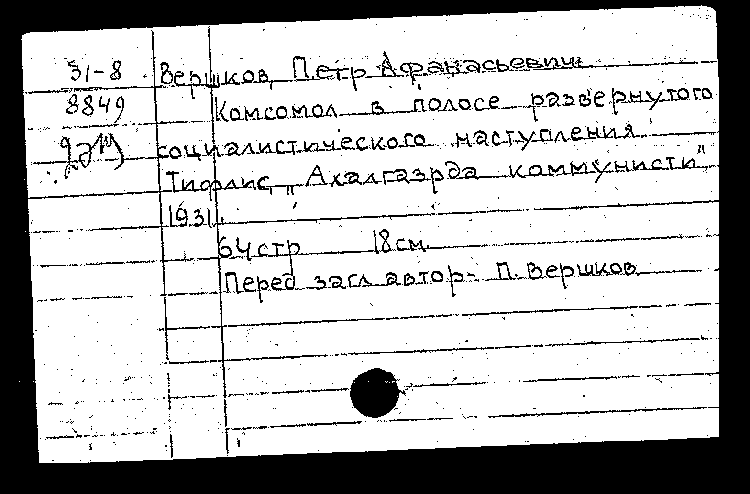 31-8 Вершков, Петр Афанасьевич
8849 Комсомол в полосе развернутого
социалистического наступления.
Тифлис, „Ахалгазрда коммунисти",
1931.
64 стр 18 см.
Перед загл автор- П. Вершков